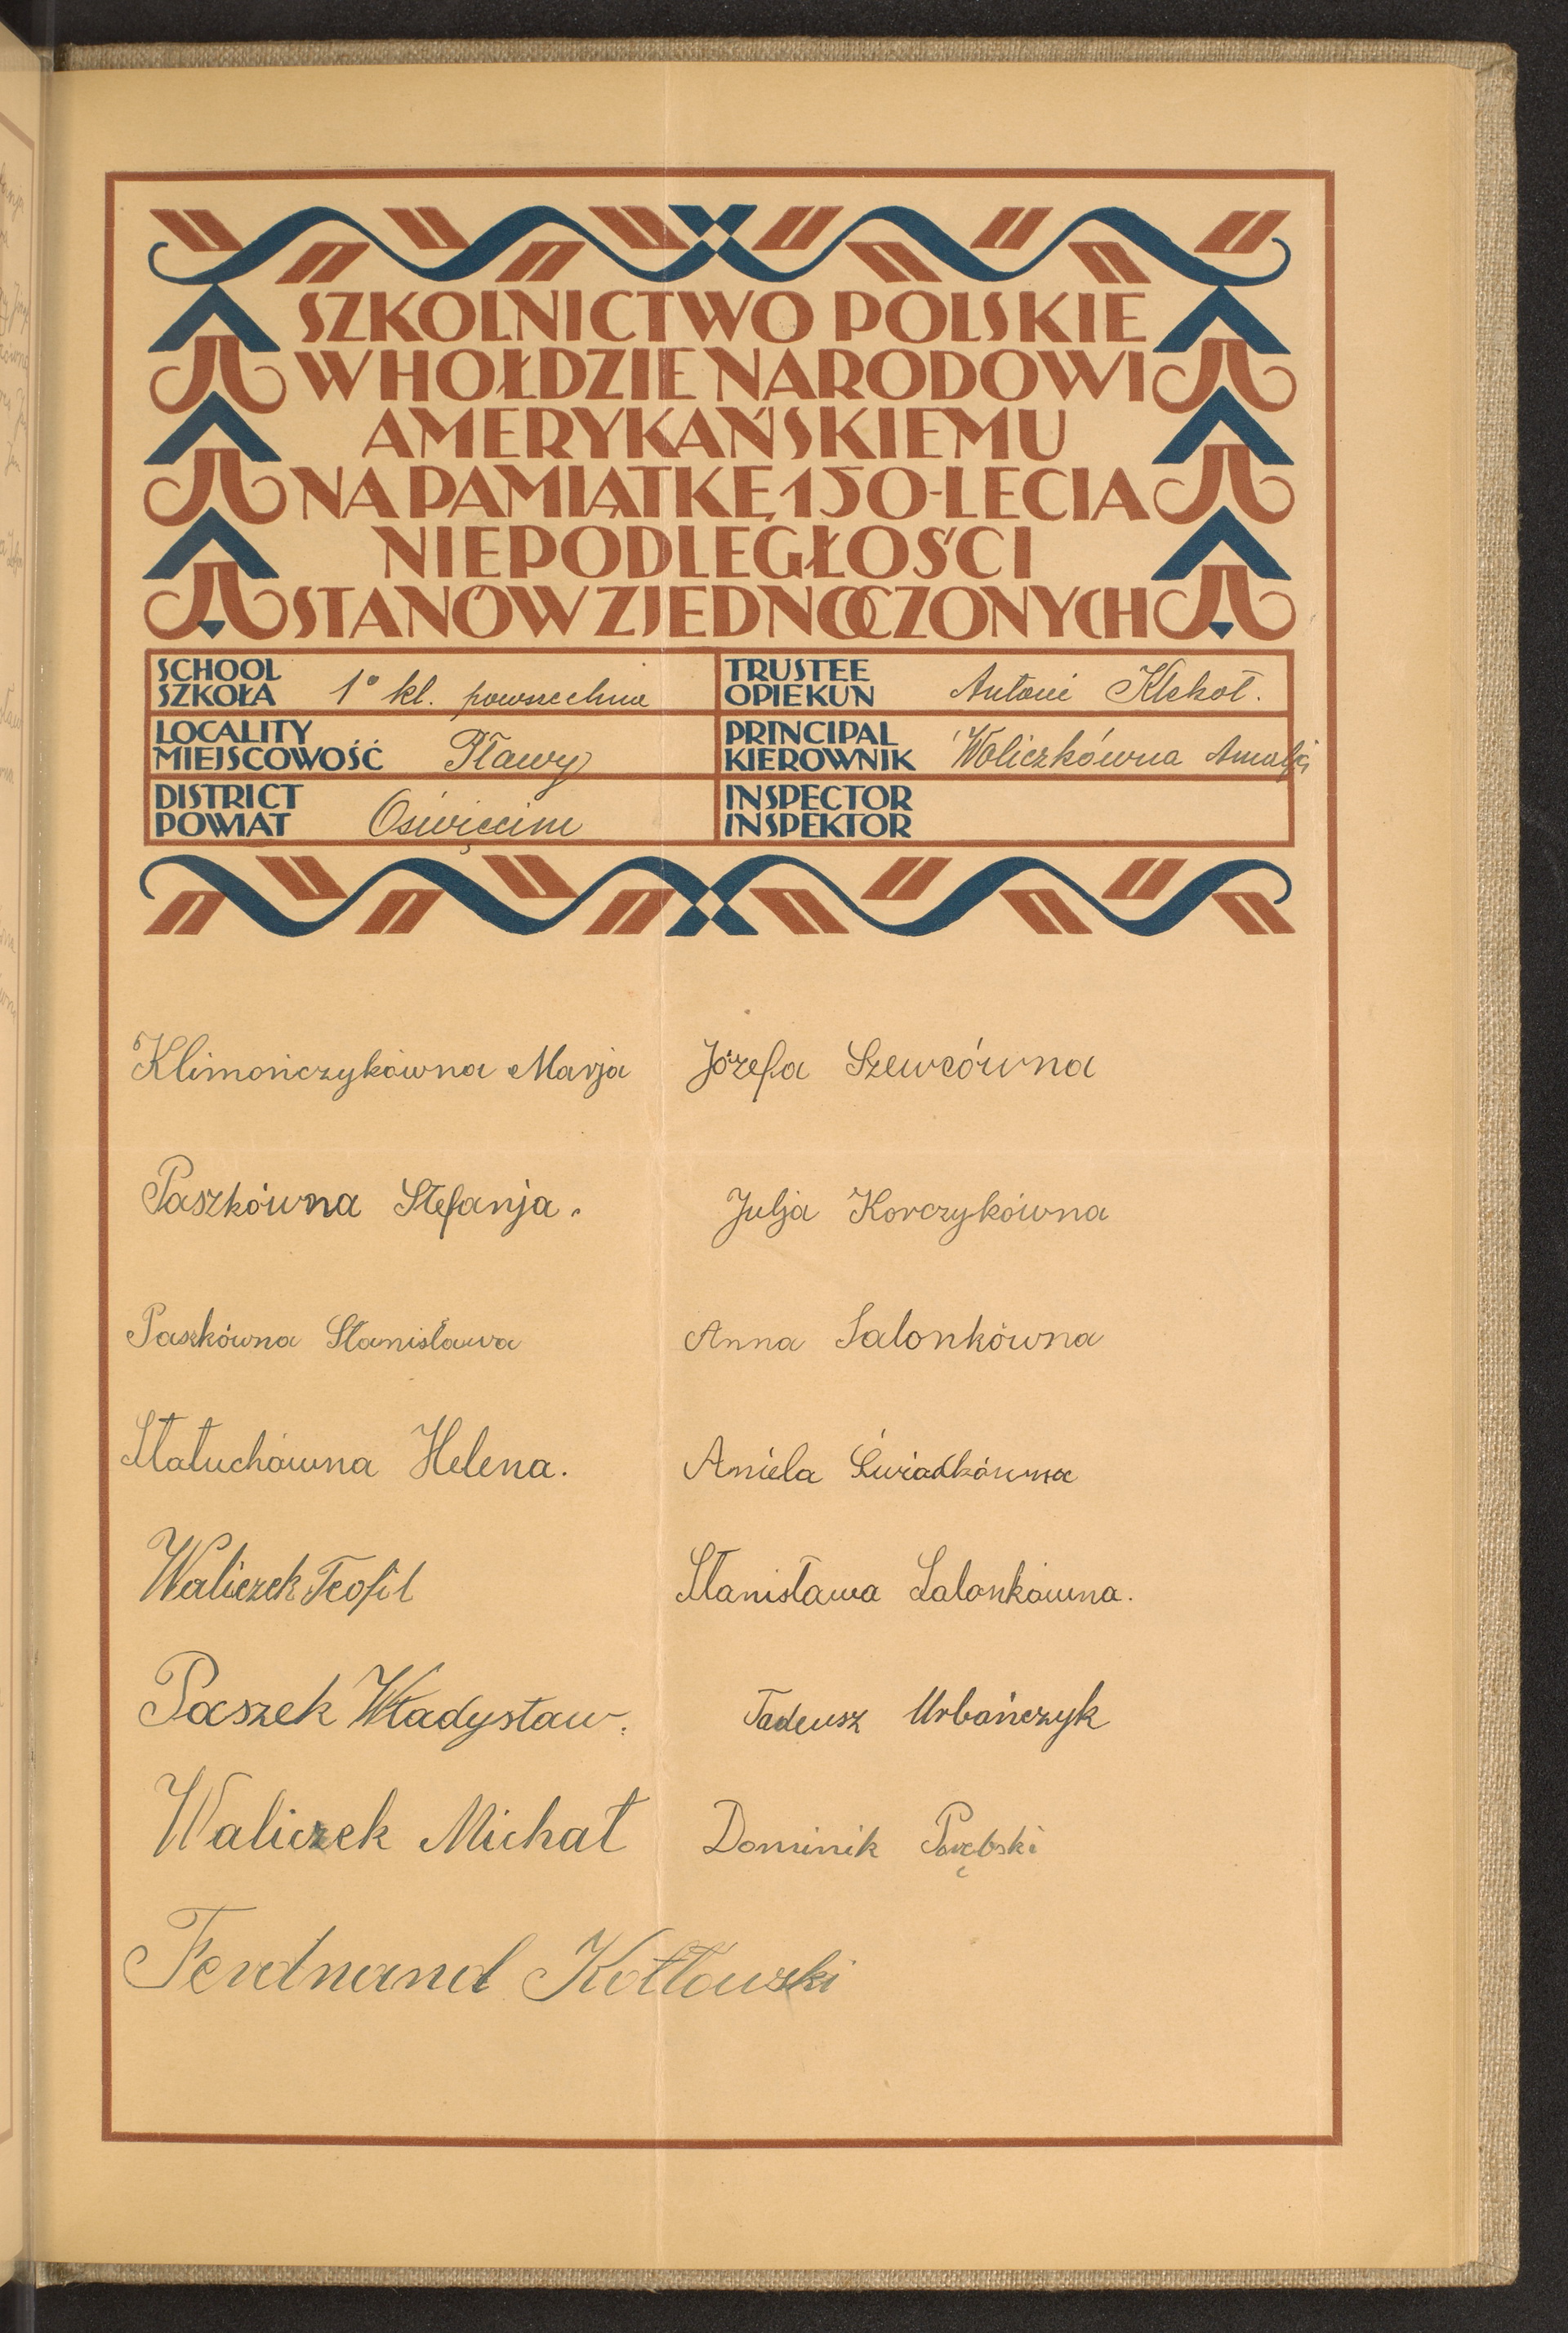 SZKOLNICTWO POLSKIE
W HOŁDZIE NARODOWI
AMERYKAŃSKIEMU
NA PAMIĄTKĘ 150-LECIA
NIEPODLEGŁOŚCI
STANÓW ZJEDNOCZONYCH
SCHOOL
SZKOŁA 1° kl. powszechna
TRUSTEE
OPIEKUN Antoni Klekot.
LOCALITY
MIEJSCOWOŚĆ Pławy
PRINCIPAL
KIEROWNIK Waliczkówna Amalja
DISTRICT
POWIAT Oświęcim
INSPECTOR
INSPEKTOR
Klimończykówna Marja
Józefa Szewcówna
Paszkówna Stefanja.
Julja Korczykówna
Paszkówna Stanisława
Anna Salonkówna
Stałuchówna Helena.
Aniela Świadkówna
Waliczek Teofil
Stanisława Salonkówna.
Paszek Władysław.
Tadeusz Urbańczyk
Waliczek Michał
Dominik Porębski
Ferdnand Kotlowski